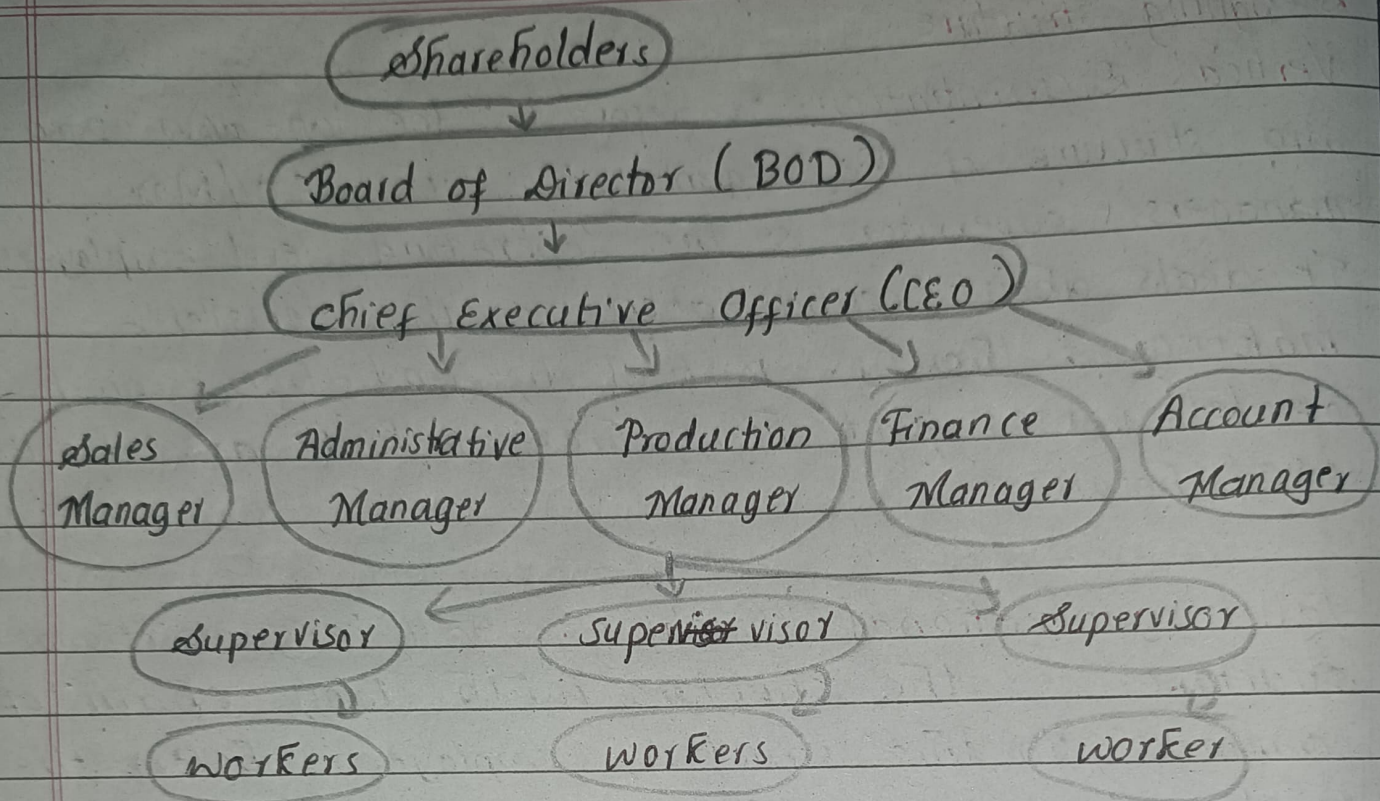 Shareholders
Board of Director (BOD)
Chief Executive Officer (CEO)
Sales
Manager
Administrative
Manager
Production
Manager
Finance
Manager
Account
Manager
Supervisor
Supervisor
Supervisor
Workers
Workers
Worker